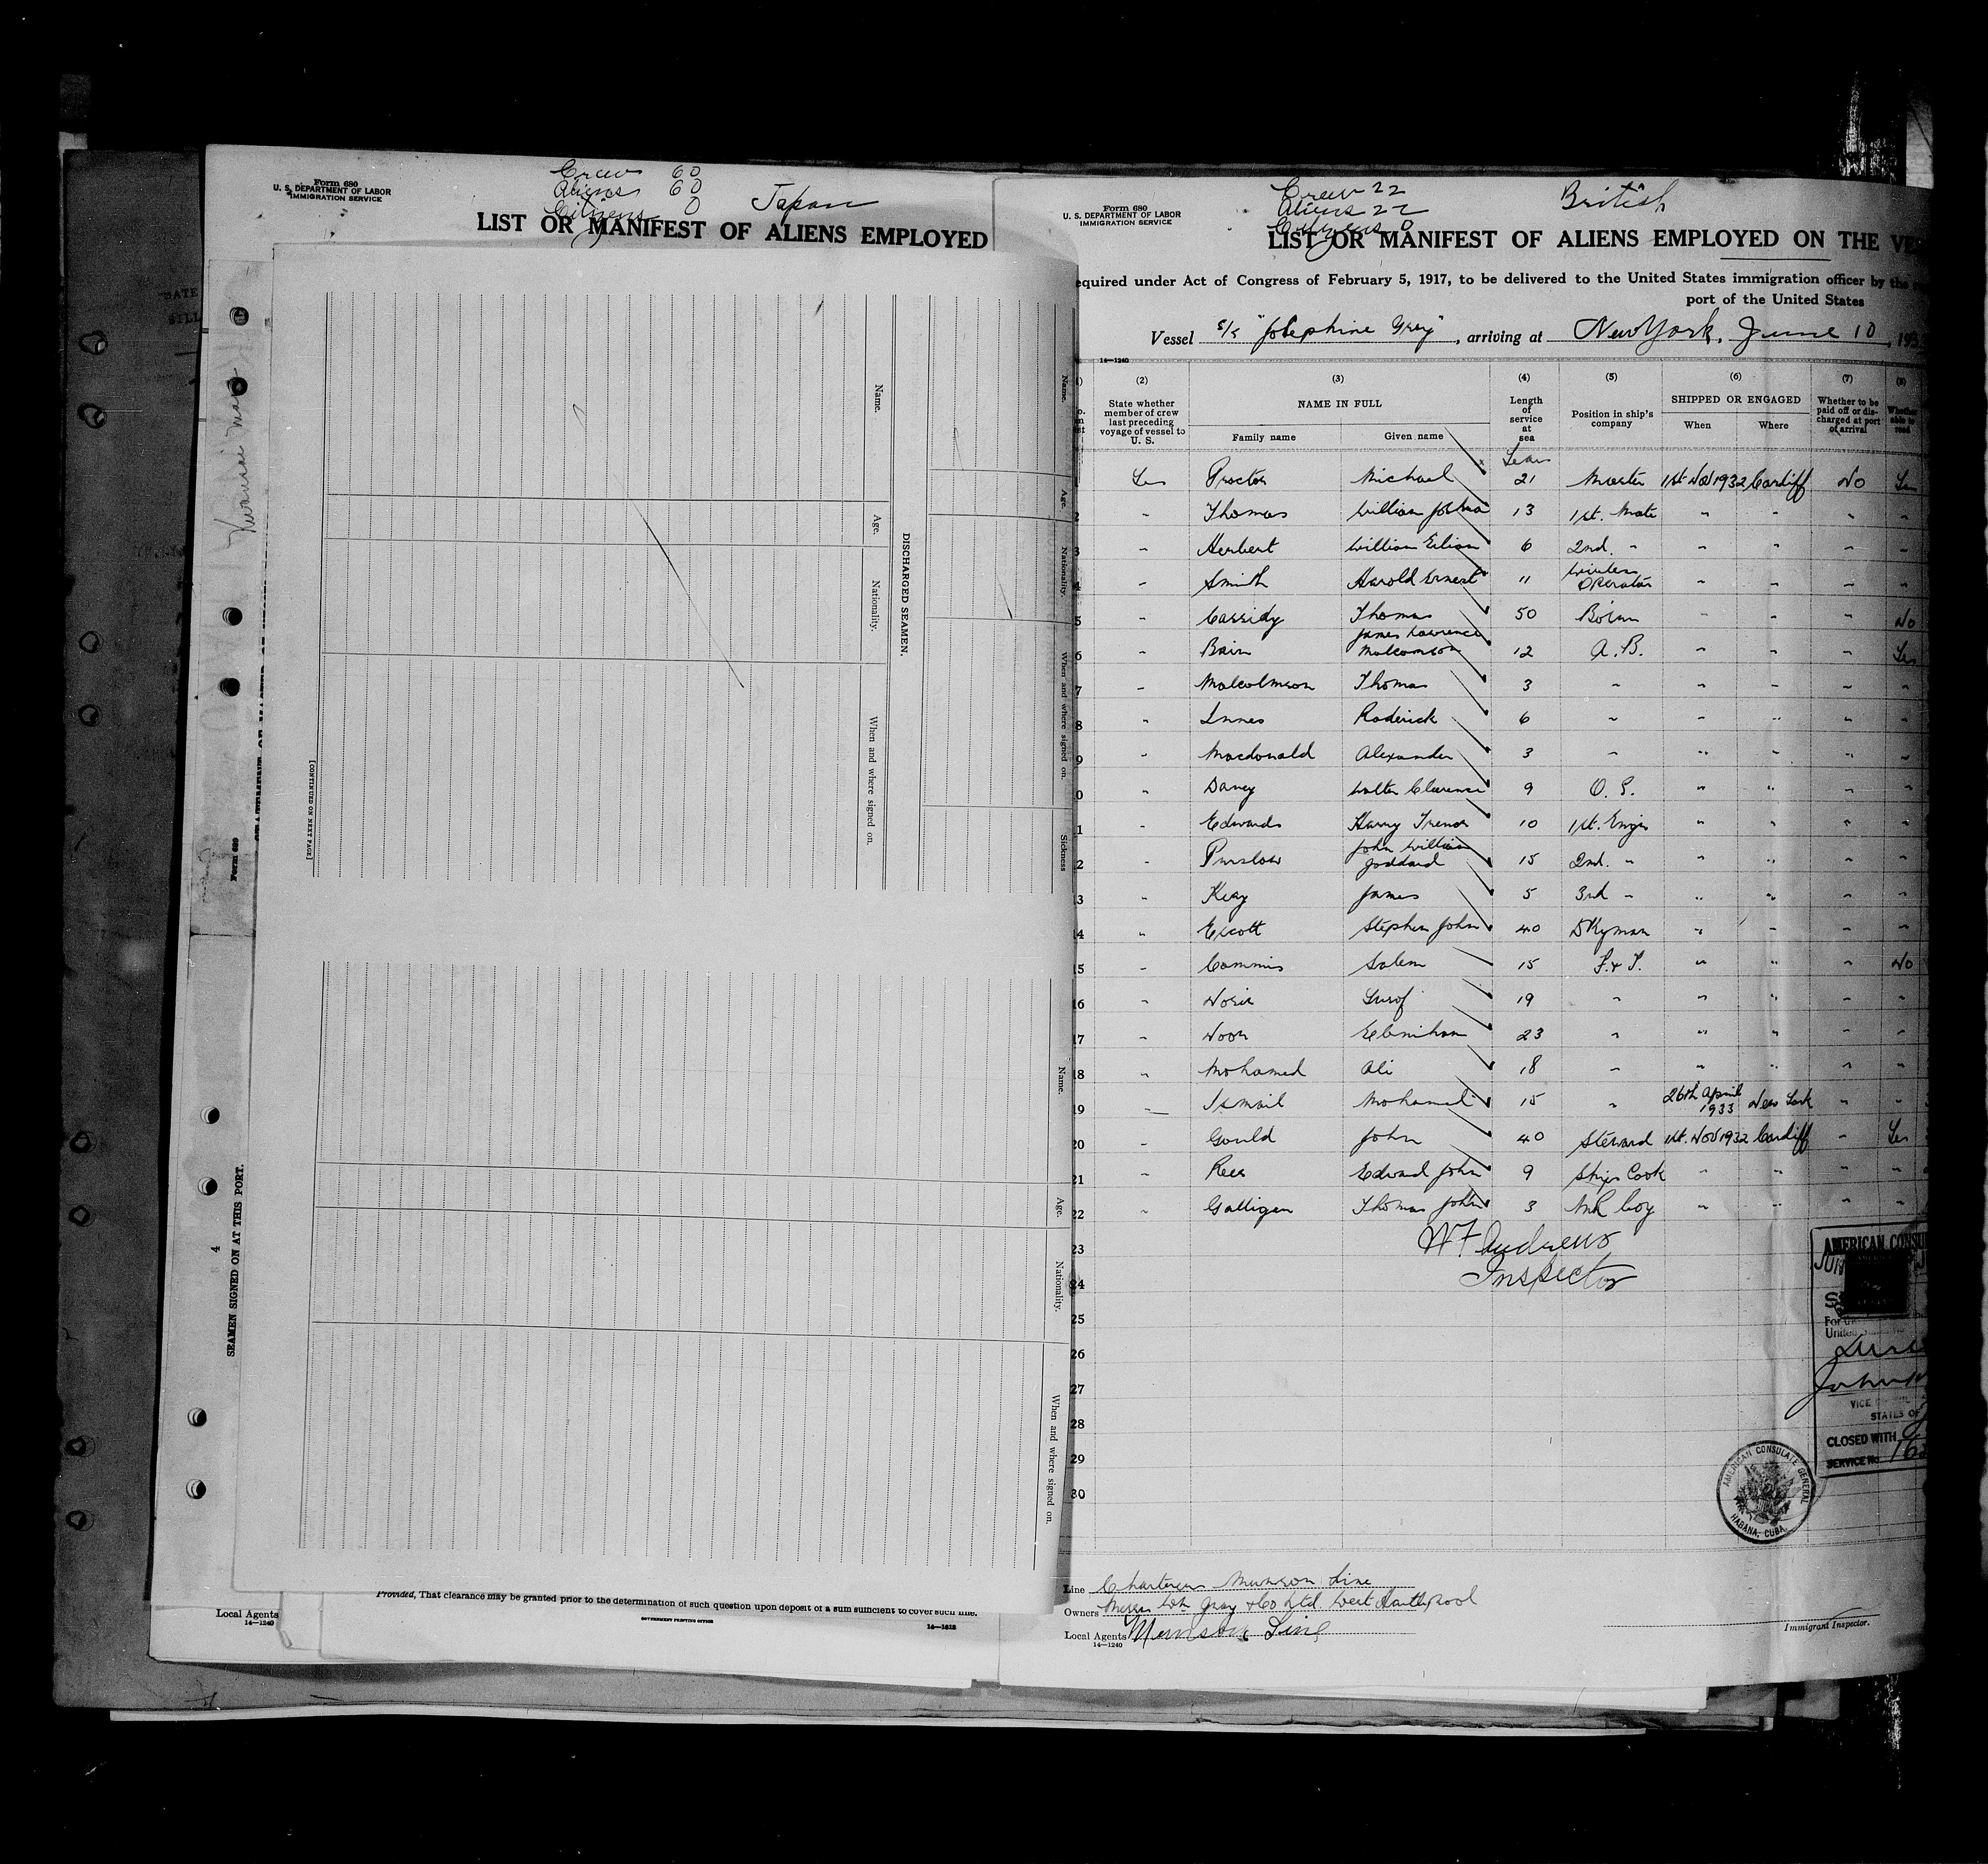 Form 680
U. S. DEPARTMENT OF LABOR
IMMIGRATION SERVICE
Crew 60
Aliens 60
Citizens 0
Japan
LIST OR MANIFEST OF ALIENS EMPLOYED
Name.
Age.
Nationality.
When and where signed on.
Sickness
DISCHARGED SEAMEN.
Name.
Age.
Nationality.
When and where signed on.
[CONTINUED ON NEXT PAGE]
Form 680
Name.
Age.
Nationality.
When and where signed on.
SEAMEN SIGNED ON AT THIS PORT.
4
Provided, That clearance may be granted prior to the determination of such question upon deposit of a sum sufficient to cover such fine.
GOVERNMENT PRINTING OFFICE
14—1618
Local Agents
14—1240
Form 680
U. S. DEPARTMENT OF LABOR
IMMIGRATION SERVICE
Crew 22
Aliens 22
Citizens 0
British
LIST OR MANIFEST OF ALIENS EMPLOYED ON THE VES
equired under Act of Congress of February 5, 1917, to be delivered to the United States immigration officer by the
port of the United States
Vessel s/s "Josephine Gray", arriving at New York, June 10, 193
14—1240
(2) (3) (4) (5) (6) (7) (8)
State whether member of crew last preceding voyage of vessel to U. S.
NAME IN FULL
Family name Given name
Length of service at sea
Position in ship's company
SHIPPED OR ENGAGED
When Where
Whether to be paid off or discharged at port of arrival
Whether able to read
Years
Yes Proctor Michael 21 Master 1st Nov 1932 Cardiff No Yes
2 " Thomas William Joshua 13 1st. Mate " " " "
3 " Herbert William Eilian 6 2nd. " " " " "
4 " Smith Harold Ernest 11 Wireless Operator " " " "
5 " Cassidy Thomas 50 Bosun " " " No
6 " Bain James Lawrence Malcomson 12 A.B. " " " Yes
7 " Malcolmson Thomas 3 " " " " "
8 " Innes Roderick 6 " " " " "
9 " Macdonald Alexander 3 " " " " "
0 " Davey Walter Clarence 9 O.S. " " " "
1 " Edwards Harry Trevor 10 1st. Engr " " " "
2 " Purslow John William Goddard 15 2nd. " " " " "
3 " Keay James 5 3rd " " " " "
4 " Escott Stephen John 40 DKyman " " " "
5 " Commis Salem 15 F.&T. " " " No
6 " 19 " " " " "
7 " Noor 23 " " " " "
18 " Mohamed Ali 18 " " " " "
19 — Ismail Mohamed 15 " 26th April 1933 New York " "
20 " Gould John 40 Steward 1st. Nov 1932 Cardiff " Yes
21 " Rees Edward John 9 Ships Cook " " " "
22 " Galligan Thomas John 3 " " " "
23
24
25
26
27
28
29
30
W F Andrews
Inspector
AMERICAN CONSU
JUN
United
John
VICE
STATES OF
CLOSED WITH
SERVICE No 162
AMERICAN CONSULATE GENERAL
HABANA, CUBA.
Line Charterers Munson Line
Owners Messrs Wm Gray & Co Ltd. West Hartlepool
Local Agents Munson Line
14—1240
Immigrant Inspector.